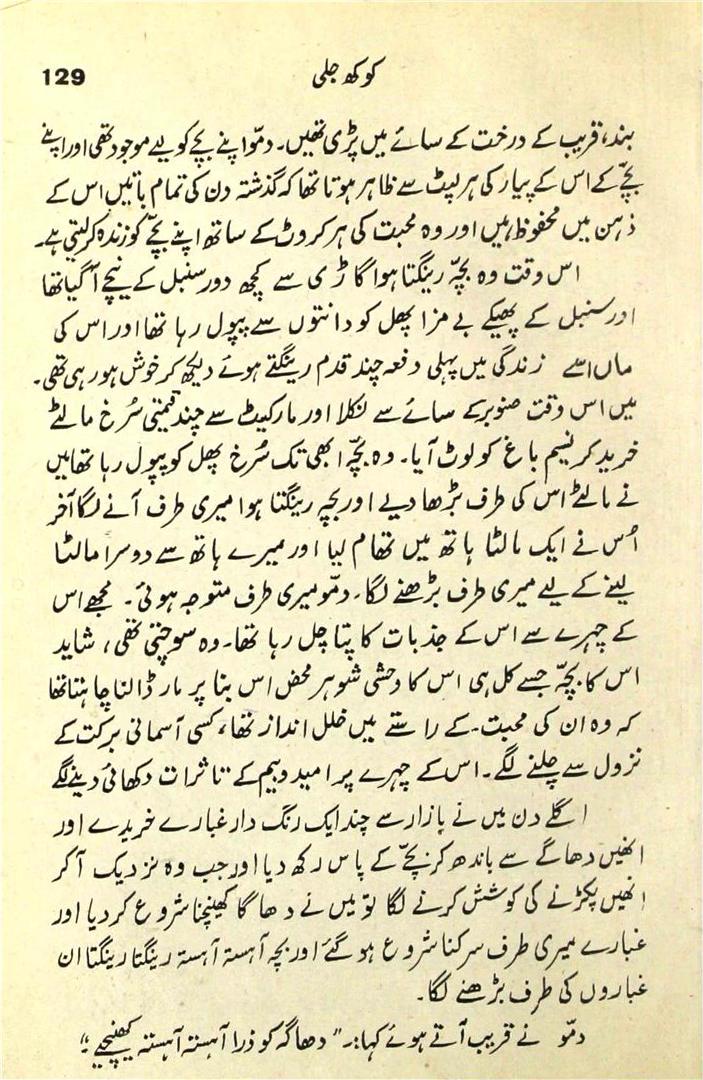 کوکھ جلی 129
بند، قریب کے درخت کے سائے میں پڑی تھیں۔ دمّو اپنے بچے کو لیے موجود تھی اور اپنے
بچّے کے اس کے پیار کی ہر لپٹ سے ظاہر ہوتا تھا کہ گذشتہ دن کی تمام باتیں اس کے
ذہن میں محفوظ ہیں اور وہ محبت کی ہر کروٹ کے ساتھ اپنے بچّے کو زندہ کر لیتی ہے۔
اس وقت وہ بچّہ رینگتا ہوا گاڑی سے کچھ دور سنبل کے نیچے آگیا تھا
اور سنبل کے پھیکے بے مزا پھل کو دانتوں سے پپول رہا تھا اور اس کی
ماں اسے زندگی میں پہلی دفعہ چند قدم رینگتے ہوئے دیکھ کر خوش ہو رہی تھی۔
میں اس وقت صنوبر کے سائے سے نکلا اور مارکیٹ سے چند قیمتی سُرخ مالٹے
خرید کر نسیم باغ کو لوٹ آیا۔ وہ بچّہ ابھی تک سُرخ پھل کو پپول رہا تھا میں
نے مالٹے اس کی طرف بڑھا دیے اور بچہ رینگتا ہوا میری طرف آنے لگا آخر
اُس نے ایک مالٹا ہاتھ میں تھام لیا اور میرے ہاتھ سے دوسرا مالٹا
لینے کے لیے میری طرف بڑھنے لگا۔ دمّو میری طرف متوجہ ہوئی۔ مجھے اس
کے چہرے سے اس کے جذبات کا پتا چل رہا تھا۔ وہ سوچتی تھی، شاید
اس کا بچّہ جسے کل ہی اس کا وحشی شوہر محض اس بنا پر مار ڈالنا چاہتا تھا
کہ وہ ان کی محبت کے راستے میں خلل انداز تھا، کسی آسمانی برکت کے
نزول سے چلنے لگے۔ اس کے چہرے پر امید و بیم کے تاثرات دکھائی دینے لگے
اگلے دن میں نے بازار سے چند ایک رنگ دار غبارے خریدے اور
انھیں دھاگے سے باندھ کر بچّے کے پاس رکھ دیا اور جب وہ نزدیک آ کر
انھیں پکڑنے کی کوشش کرنے لگا تو میں نے دھاگا کھینچنا شروع کر دیا اور
غبارے میری طرف سرکنا شروع ہو گئے اور بچہ آہستہ آہستہ رینگتا رینگتا ان
غباروں کی طرف بڑھنے لگا۔
دمّو نے قریب آتے ہوئے کہا:۔ "دھاگہ کو ذرا آہستہ آہستہ کھینچیے۔"